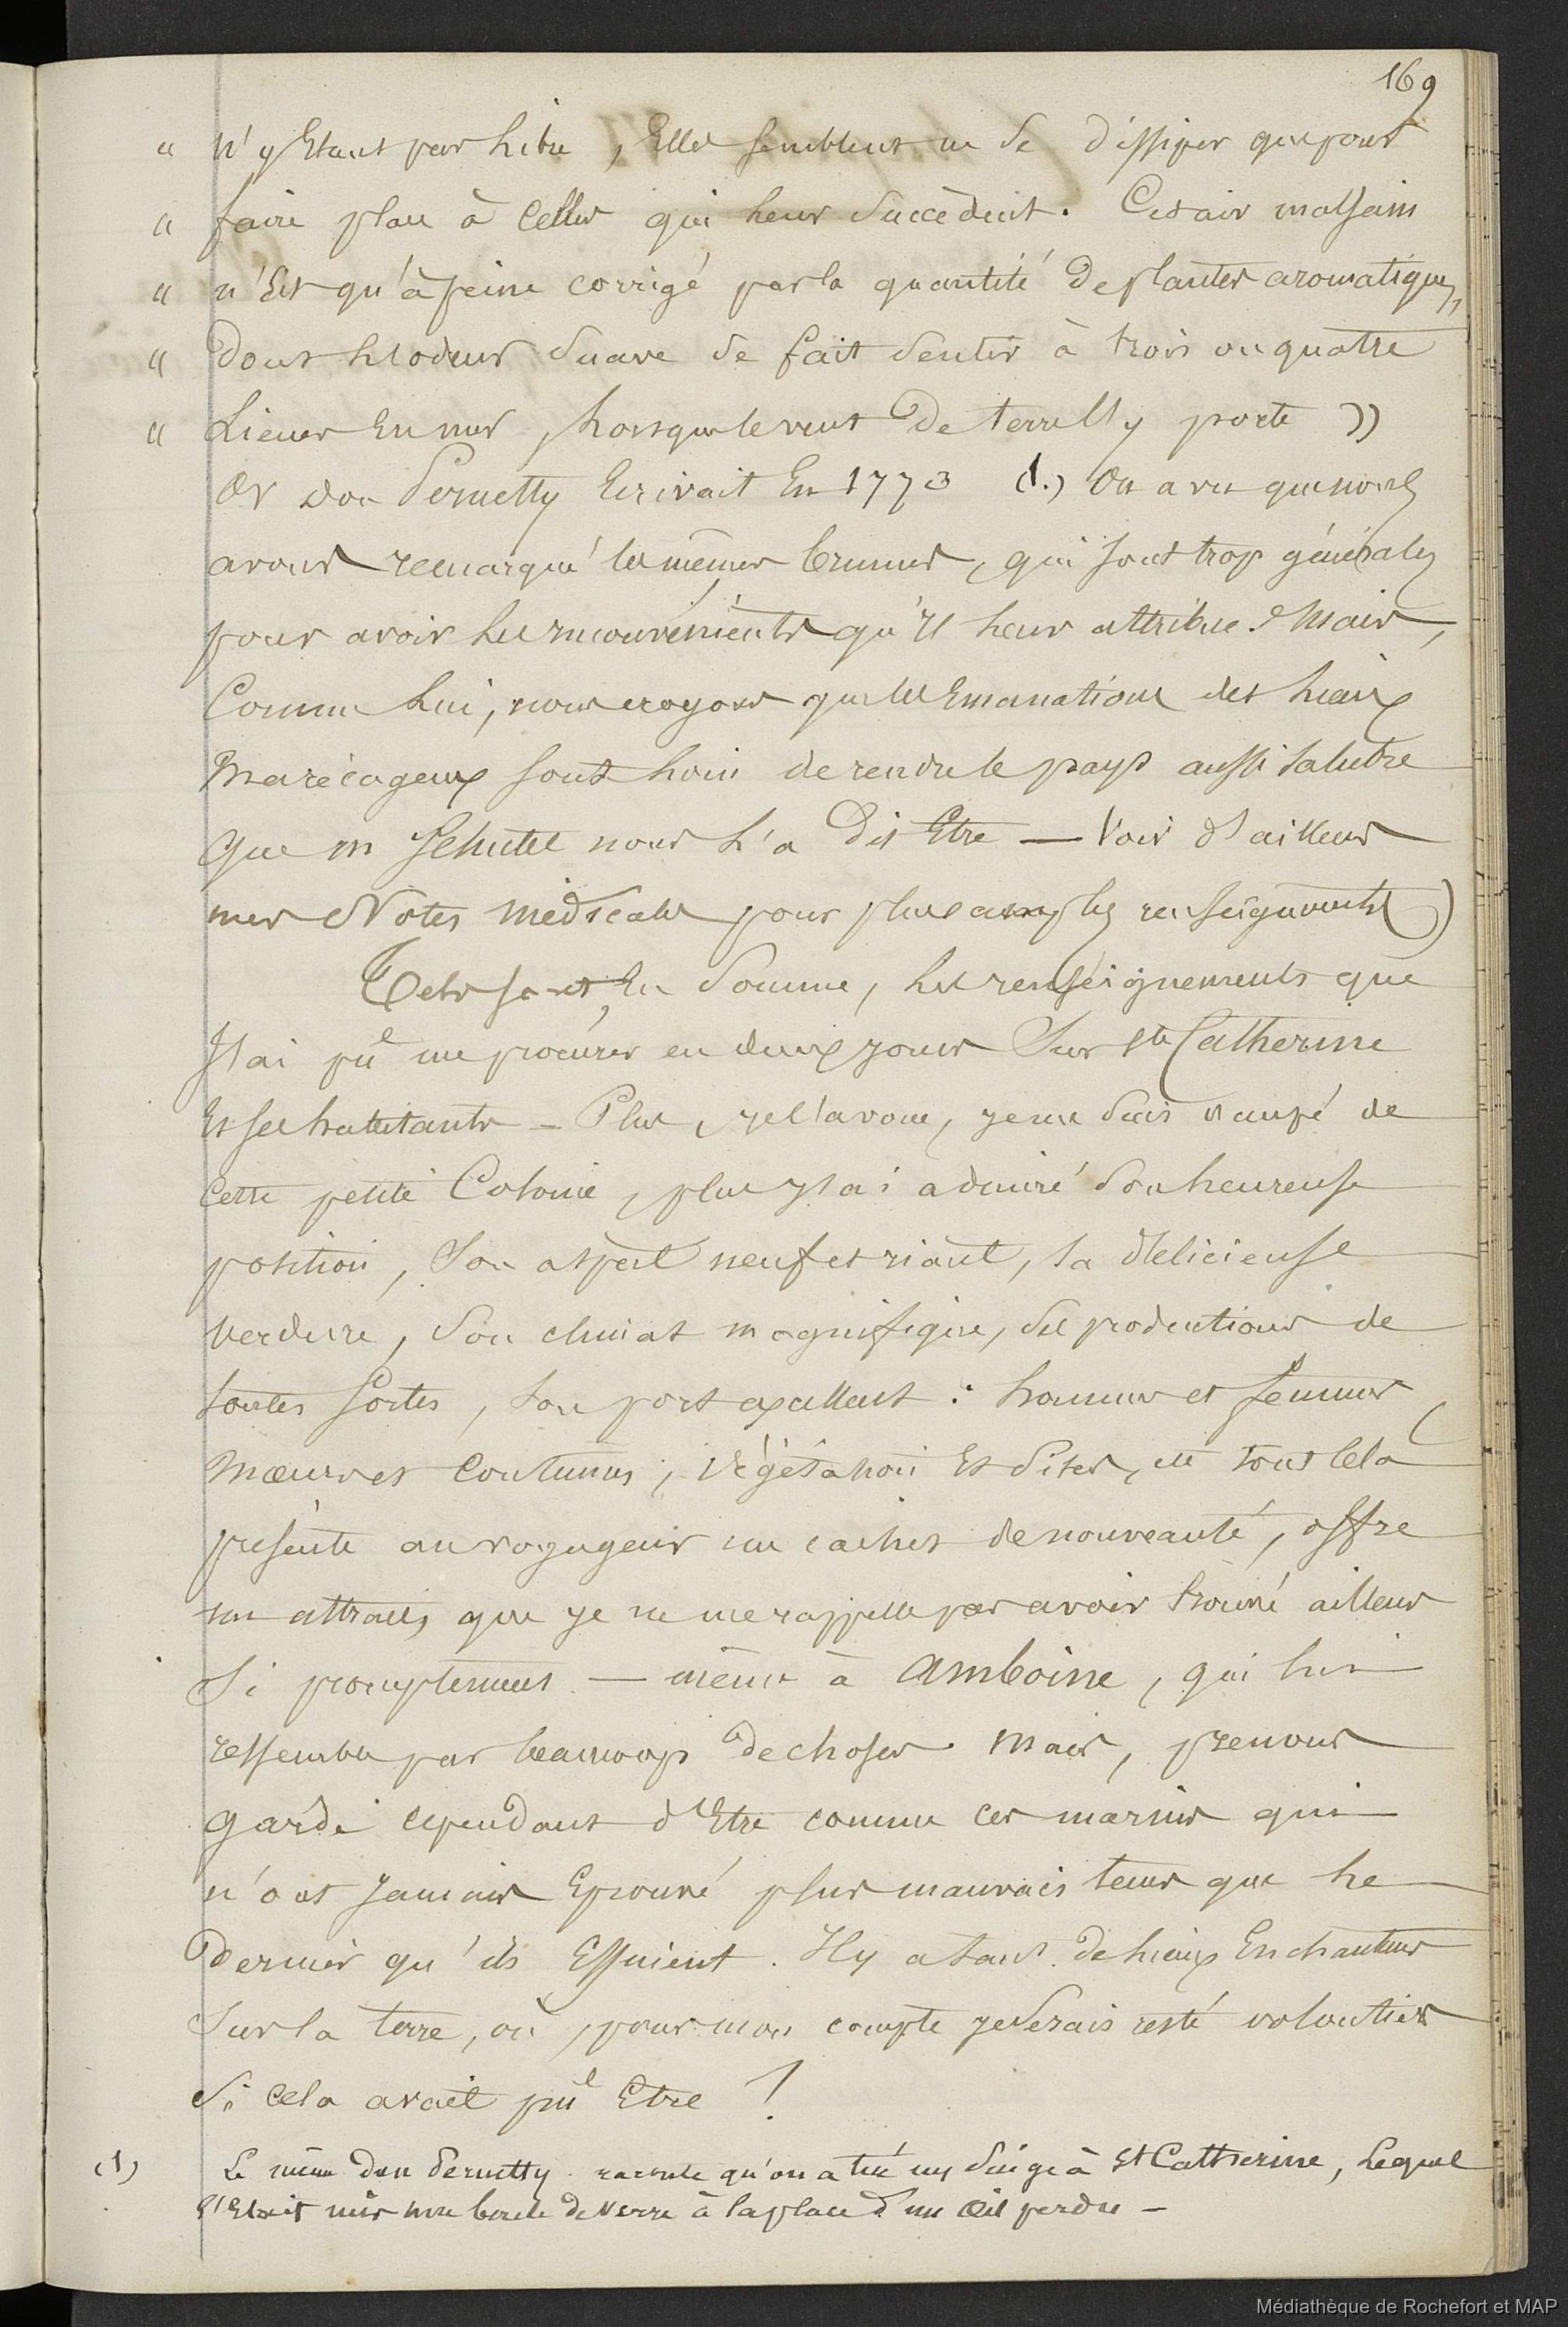 169
" n'y Etant pas libre, Elles semblent ne se dissiper que pour
" faire place à Celles qui leur succèdent. Cet air malsain
" n'Est qu'à peine corrigé par la quantité de plantes aromatiques,
" dont l'odeur suave se fait sentir à trois ou quatre
" Lieues En mer, lorsque le vent de terre l'y porte »
Or don Pernetty Ecrivait En 1773 (1.) On a vu que nous
avons remarqué les mêmes brumes, qui sont trop générales
pour avoir les inconvénients qu'il leur attribue. Mais,
Comme lui, nous croyons que les Emanations des lieux
Marécageux sont loin de rendre le pays aussi salubre
que m Schutel nous l'a dit Etre — Voir d'ailleurs
mes Notes médicales pour plus amples renseignements)
Tels sont, En somme, les renseignements que
J'ai pû me procurer en deux jours Sur Ste Catherine
Et ses habitants — Plus, je l'avoue, je me suis occupé de
cette petite Colonie, plus j'ai admiré son heureuse
position, Son aspect neuf et riant, sa délicieuse
verdure, Son climat magnifique, ses productions de
toutes sortes, son port excellent : hommes et femmes
Mœurs et Coutumes, végétation Et Sites, tout cela
présente au voyageur un cachet de nouveauté, offre
un attrait, que je ne me rappelle pas avoir trouvé ailleurs
Si promptement — même à Amboine, qui lui
ressemble par beaucoup de choses. Mais, prenons
garde cependant d'Etre comme ces marins qui
n'ont Jamais Eprouvé plus mauvais tems que le
dernier qu'ils Essuient. Il y a tant de lieux Enchanteurs
Sur la terre, où, pour mon compte je serais resté volontiers
Si cela avait pû Etre !
(1) Le même don Pernetty raconte qu'on a tué un Singe à St Catherine, Lequel
s'Etait mis une boule de Verre à la place d'un Œil perdu —
Médiathèque de Rochefort et MAP